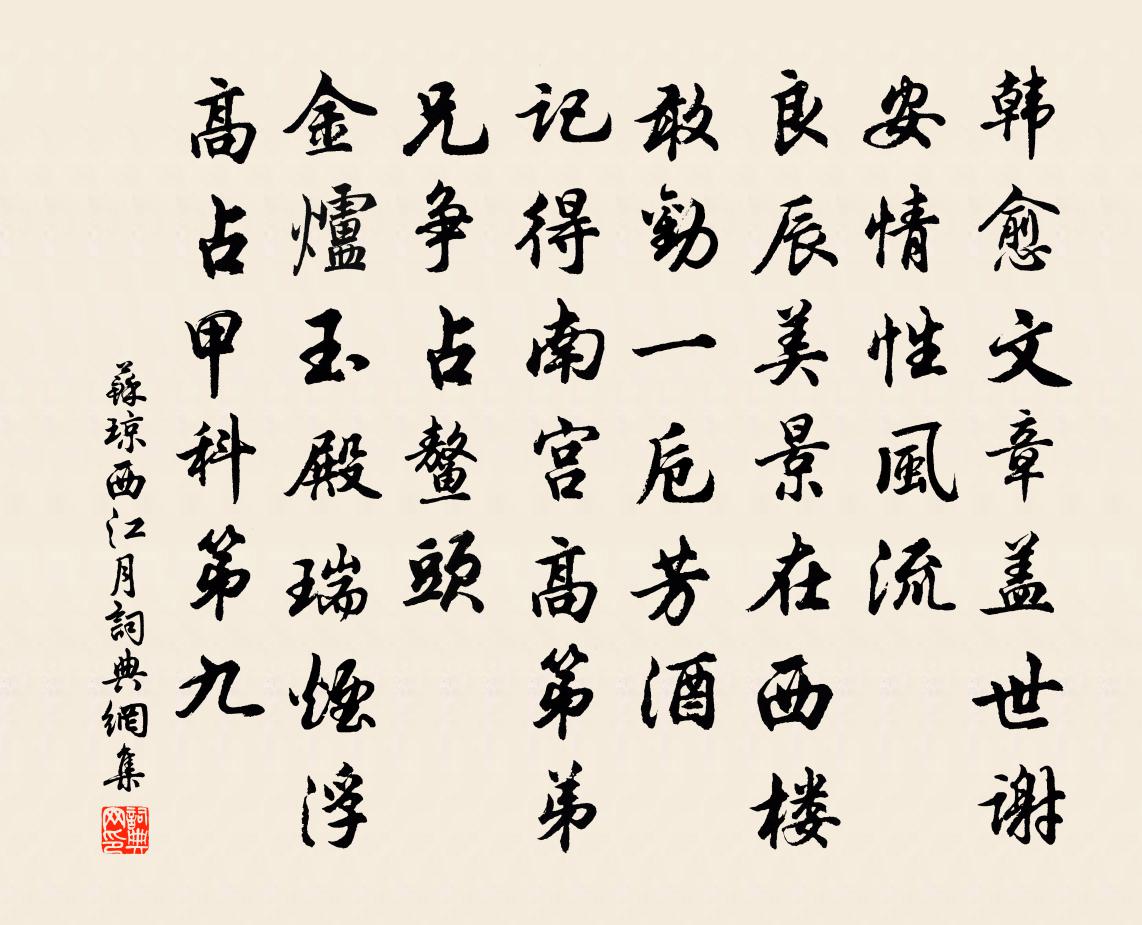 韩愈文章盖世谢
安情性風流
良辰美景在西楼
敢勸一卮芳酒
記得南宫高第弟
兄争占鳌頭
金爐玉殿瑞煙浮
高占甲科第九
蘇琼西江月詞典網集
詞典网印